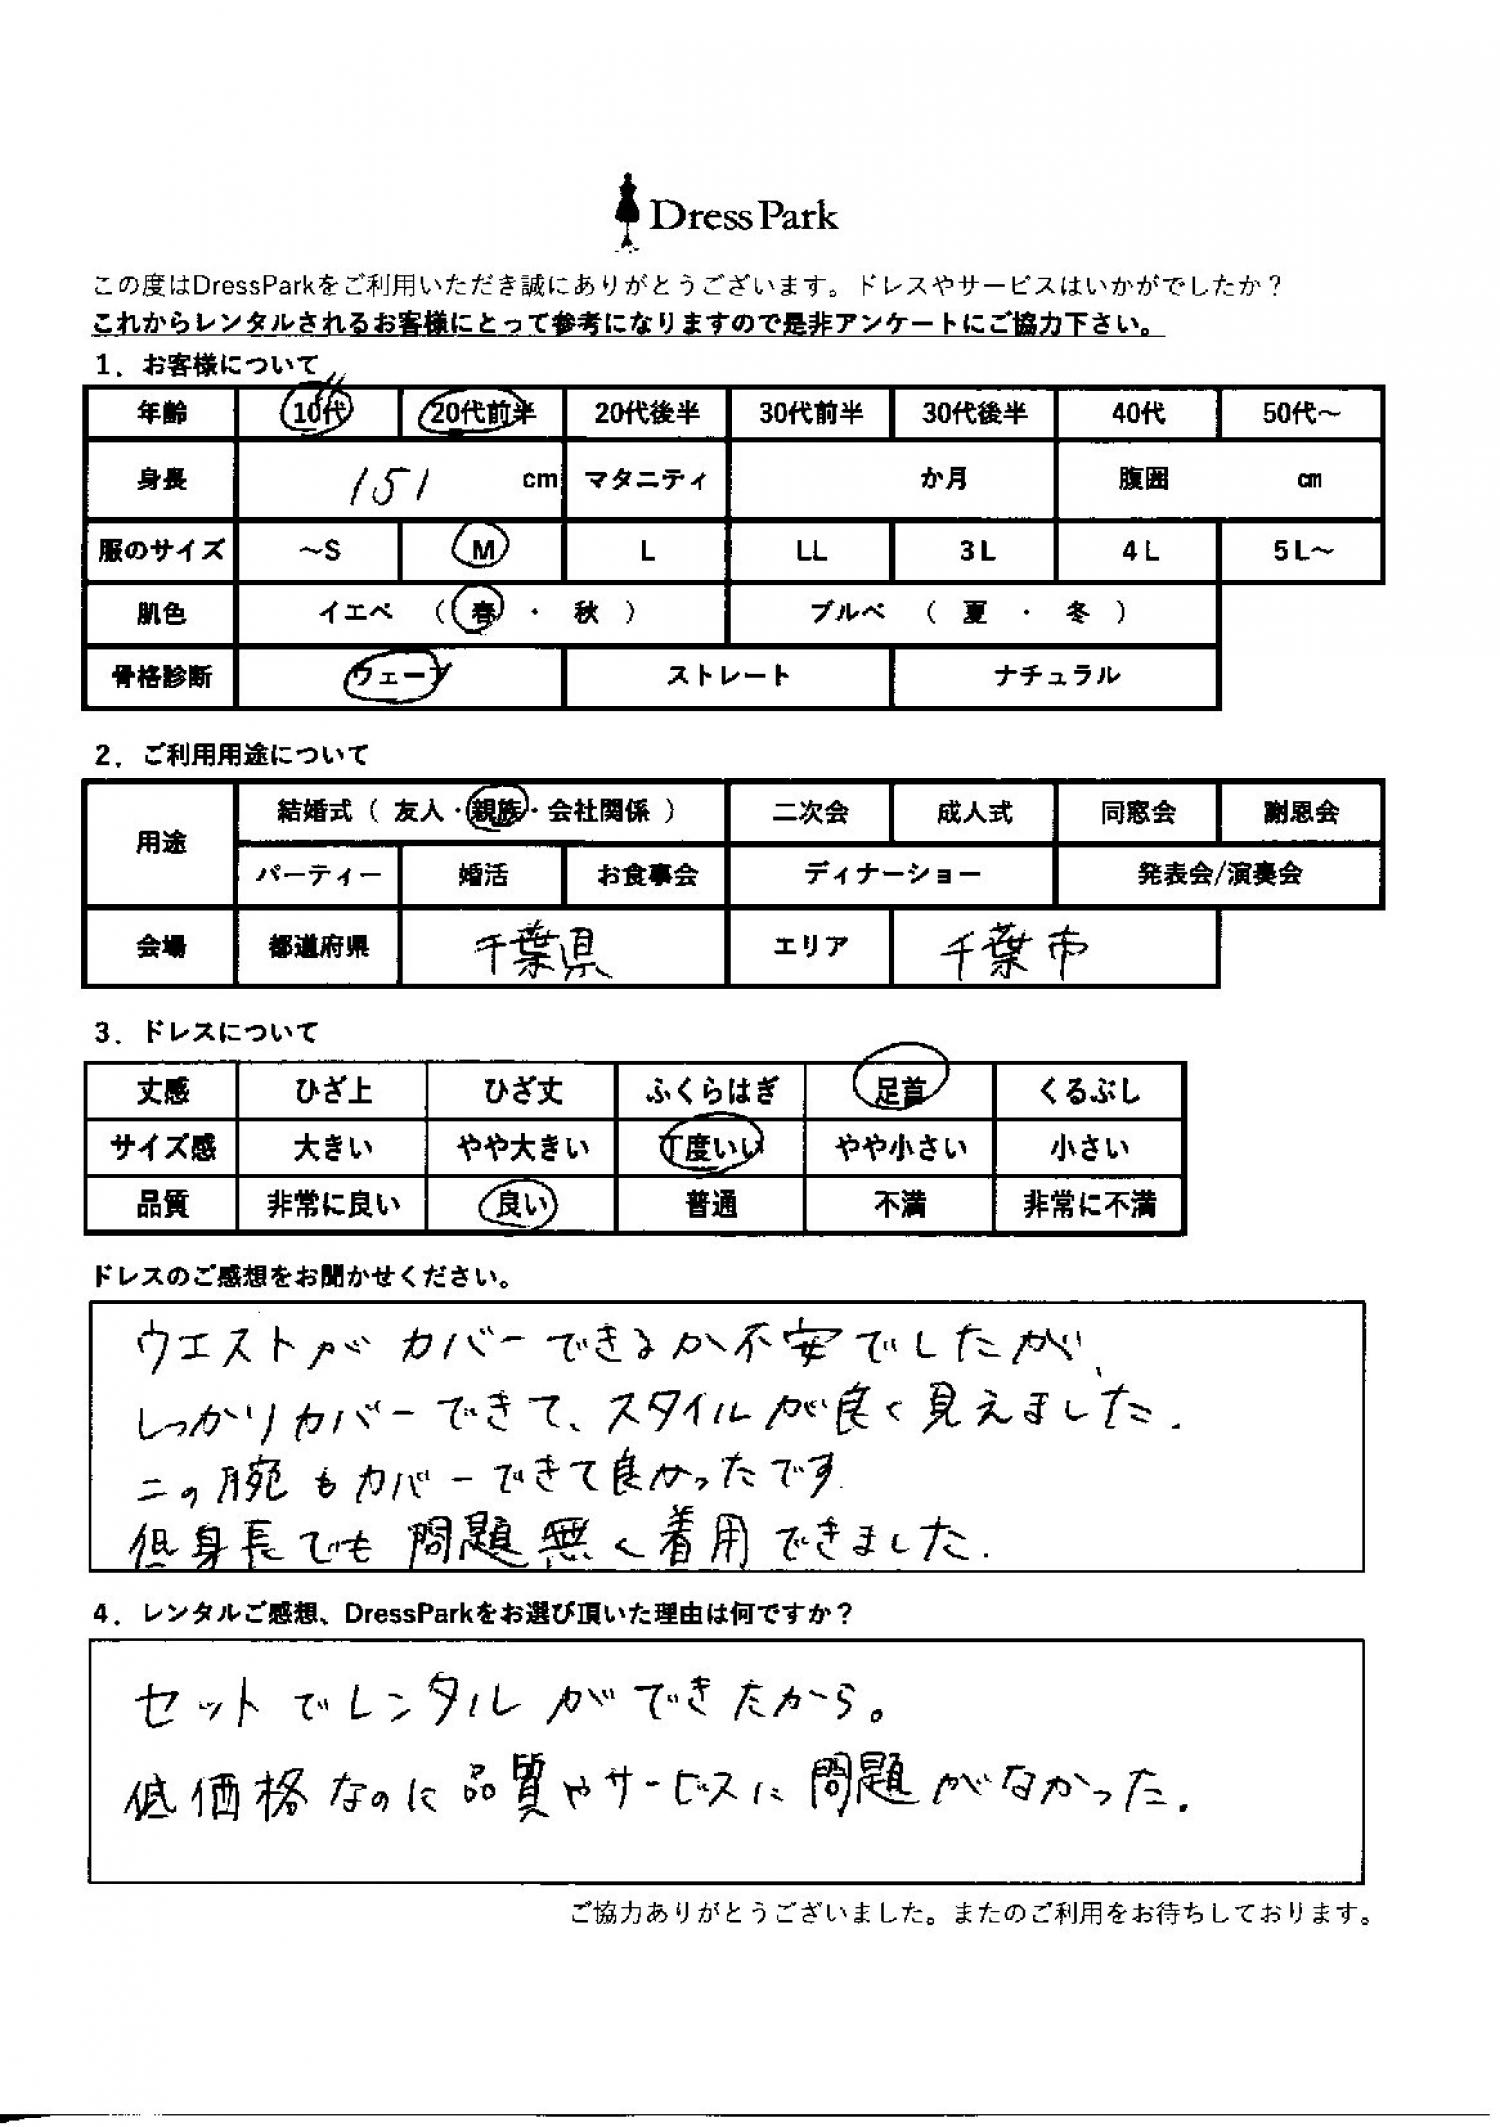 Dress Park
この度はDressParkをご利用いただき誠にありがとうございます。ドレスやサービスはいかがでしたか？
これからレンタルされるお客様にとって参考になりますので是非アンケートにご協力下さい。
1．お客様について
年齢 10代 20代前半 20代後半 30代前半 30代後半 40代 50代～
身長 151 cm マタニティ か月 腹囲 cm
服のサイズ ～S M L LL 3L 4L 5L～
肌色 イエベ （ 春 ・ 秋 ） ブルベ （ 夏 ・ 冬 ）
骨格診断 ウェーブ ストレート ナチュラル
2．ご利用用途について
用途 結婚式（ 友人・親族・会社関係 ） 二次会 成人式 同窓会 謝恩会
パーティー 婚活 お食事会 ディナーショー 発表会/演奏会
会場 都道府県 千葉県 エリア 千葉市
3．ドレスについて
丈感 ひざ上 ひざ丈 ふくらはぎ 足首 くるぶし
サイズ感 大きい やや大きい 丁度いい やや小さい 小さい
品質 非常に良い 良い 普通 不満 非常に不満
ドレスのご感想をお聞かせください。
ウエストがカバーできるか不安でしたが、
しっかりカバーできて、スタイルが良く見えました．
二の腕もカバーできて良かったです．
低身長でも問題無く着用できました．
4．レンタルご感想、DressParkをお選び頂いた理由は何ですか？
セットでレンタルができたから。
低価格なのに品質やサービスに問題がなかった．
ご協力ありがとうございました。またのご利用をお待ちしております。